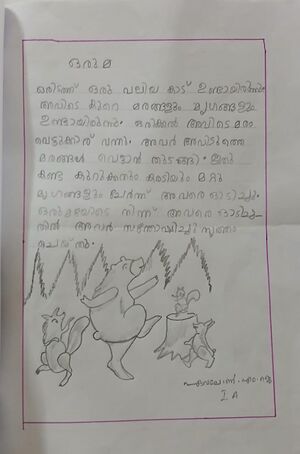 ഒരുമ
ഒരിടത്ത് ഒരു വലിയ കാട് ഉണ്ടായിരുന്നു.
അവിടെ കുറെ മരങ്ങളും മൃഗങ്ങളും
ഉണ്ടായിരുന്നു. ഒരിക്കൽ അവിടെ മരം
വെട്ടുക്കാര് വന്നു. അവർ അവിടുത്തെ
മരങ്ങൾ വെട്ടാൻ തുടങ്ങി. ഇതു
കണ്ട കുറുക്കനും കരടിയും മറ്റു
മൃഗങ്ങളും ചേർന്ന് അവരെ ഓടിച്ചു.
ഒരുമയോടെ നിന്ന് അവരെ ഓടിച്ച
തിൽ അവർ സന്തോഷിച്ചു നൃത്തം
ചെയ്തു.
I A